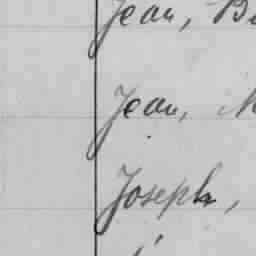 Jean, B
Jean,
Joseph,